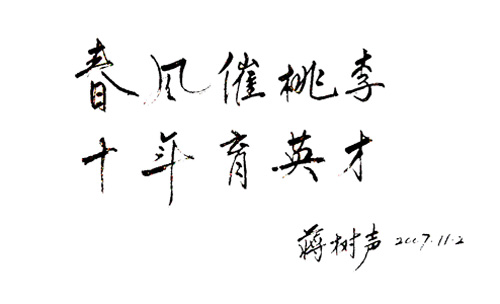 春风催桃李
十年育英才
蒋树声 2007.11.2